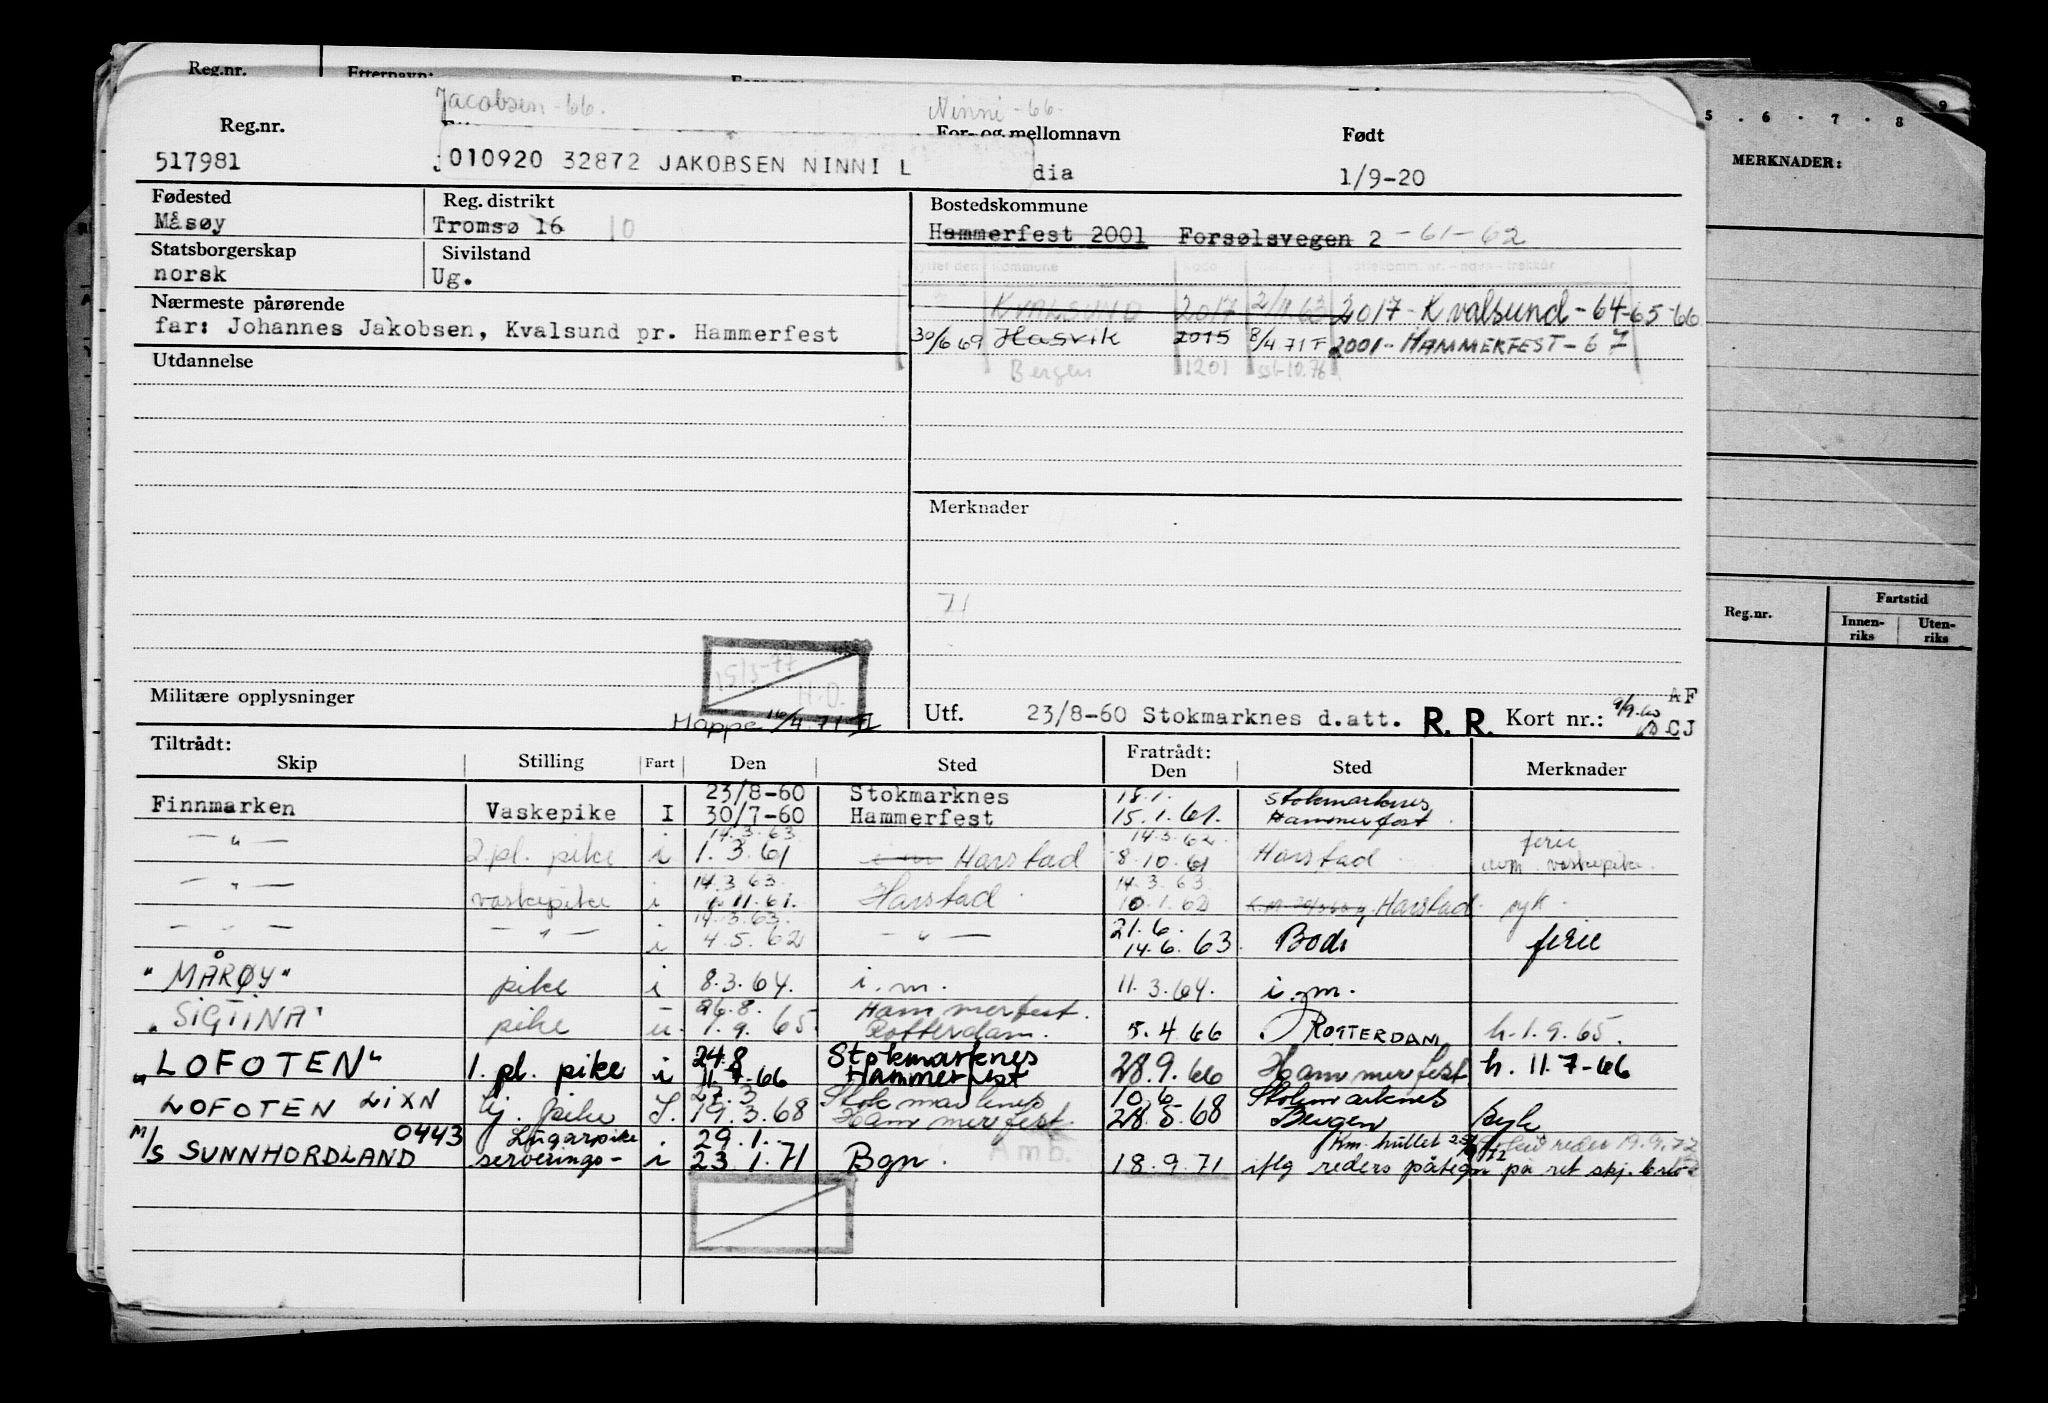 Reg.nr.
Jacobsen - 66.
Ninni - 66.
5 . 6 . 7 . 8 9
Reg.nr.
For- og mellomnavn
Født
MERKNADER:
517981
010920 32872 JAKOBSEN NINNI L
dia
1/9-20
Fødested
Reg. distrikt
Bostedskommune
Måsøy
Tromsø 16 10
Hammerfest 2001 Forsølsvegen 2 - 61-62
Statsborgerskap
Sivilstand
norsk
Ug.
Kommune
Nærmeste pårørende
KVALSUND 2017 2/11 63 2017 - Kvalsund - 64-65-66
far: Johannes Jakobsen, Kvalsund pr. Hammerfest
30/6 69 Hasvik 2015 8/4 71 F 2001 - HAMMERFEST - 67
Utdannelse
Bergen 1201 10.76
Merknader
71
Reg.nr.
Fartstid
Innen-
riks
Uten-
riks
15/3-77
H.O.
Militære opplysninger
Mappe 16/4.71
Utf. 23/8-60 Stokmarknes d.att. R. R. Kort nr.: 9/9.60 AF
CJ
Tiltrådt:
Skip
Stilling
Fart
Den
Sted
Fratrådt:
Den
Sted
Merknader
Finnmarken Vaskepike I 23/8-60 Stokmarknes 18.1. Stokmarknes
30/7-60 Hammerfest 15.1.61. Hammerfest
— " — 2.pl. pike i 14.3.63 1.3.61 Harstad 14.3.62 8.10.61 Harstad ferie vaskepike.
— " — vaskepike i 14.3.63. 11.61. Harstad 14.3.63. 10.1.62 Harstad syk.
— " — i 14.3.63. 4.5.62 — " — 21.6. 14.6.63. Bodø ferie
"MÅRØY" pike i 8.3.64. i.m. 11.3.64. i.m.
"SIGTINA" pike u. 26.8. Hammerfest.
1.9.65. Rotterdam. 5.4.66 ROTTERDAM h.1.9.65.
"LOFOTEN" 1. pl. pike i 24.8 Stokmarknes
11.7.66 Hammerfest 28.9.66 Hammerfest h. 11.7-66
LOFOTEN LIXN pike I. 27.3 Stokmarknes 10.6 Stokmarknes
19.3.68 Hammerfest 28.5.68 Bergen
M/S SUNNHORDLAND 0443 Lugarpike
serverings- i 29.1.
23.1.71 Bgn. Amb. 18.9.71 iflg reders påtegn på ret skj.